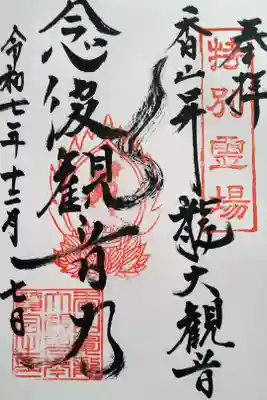 奉拝
特別霊場
香山昇龍大観音
念彼観音力
令和七年十二月十七日